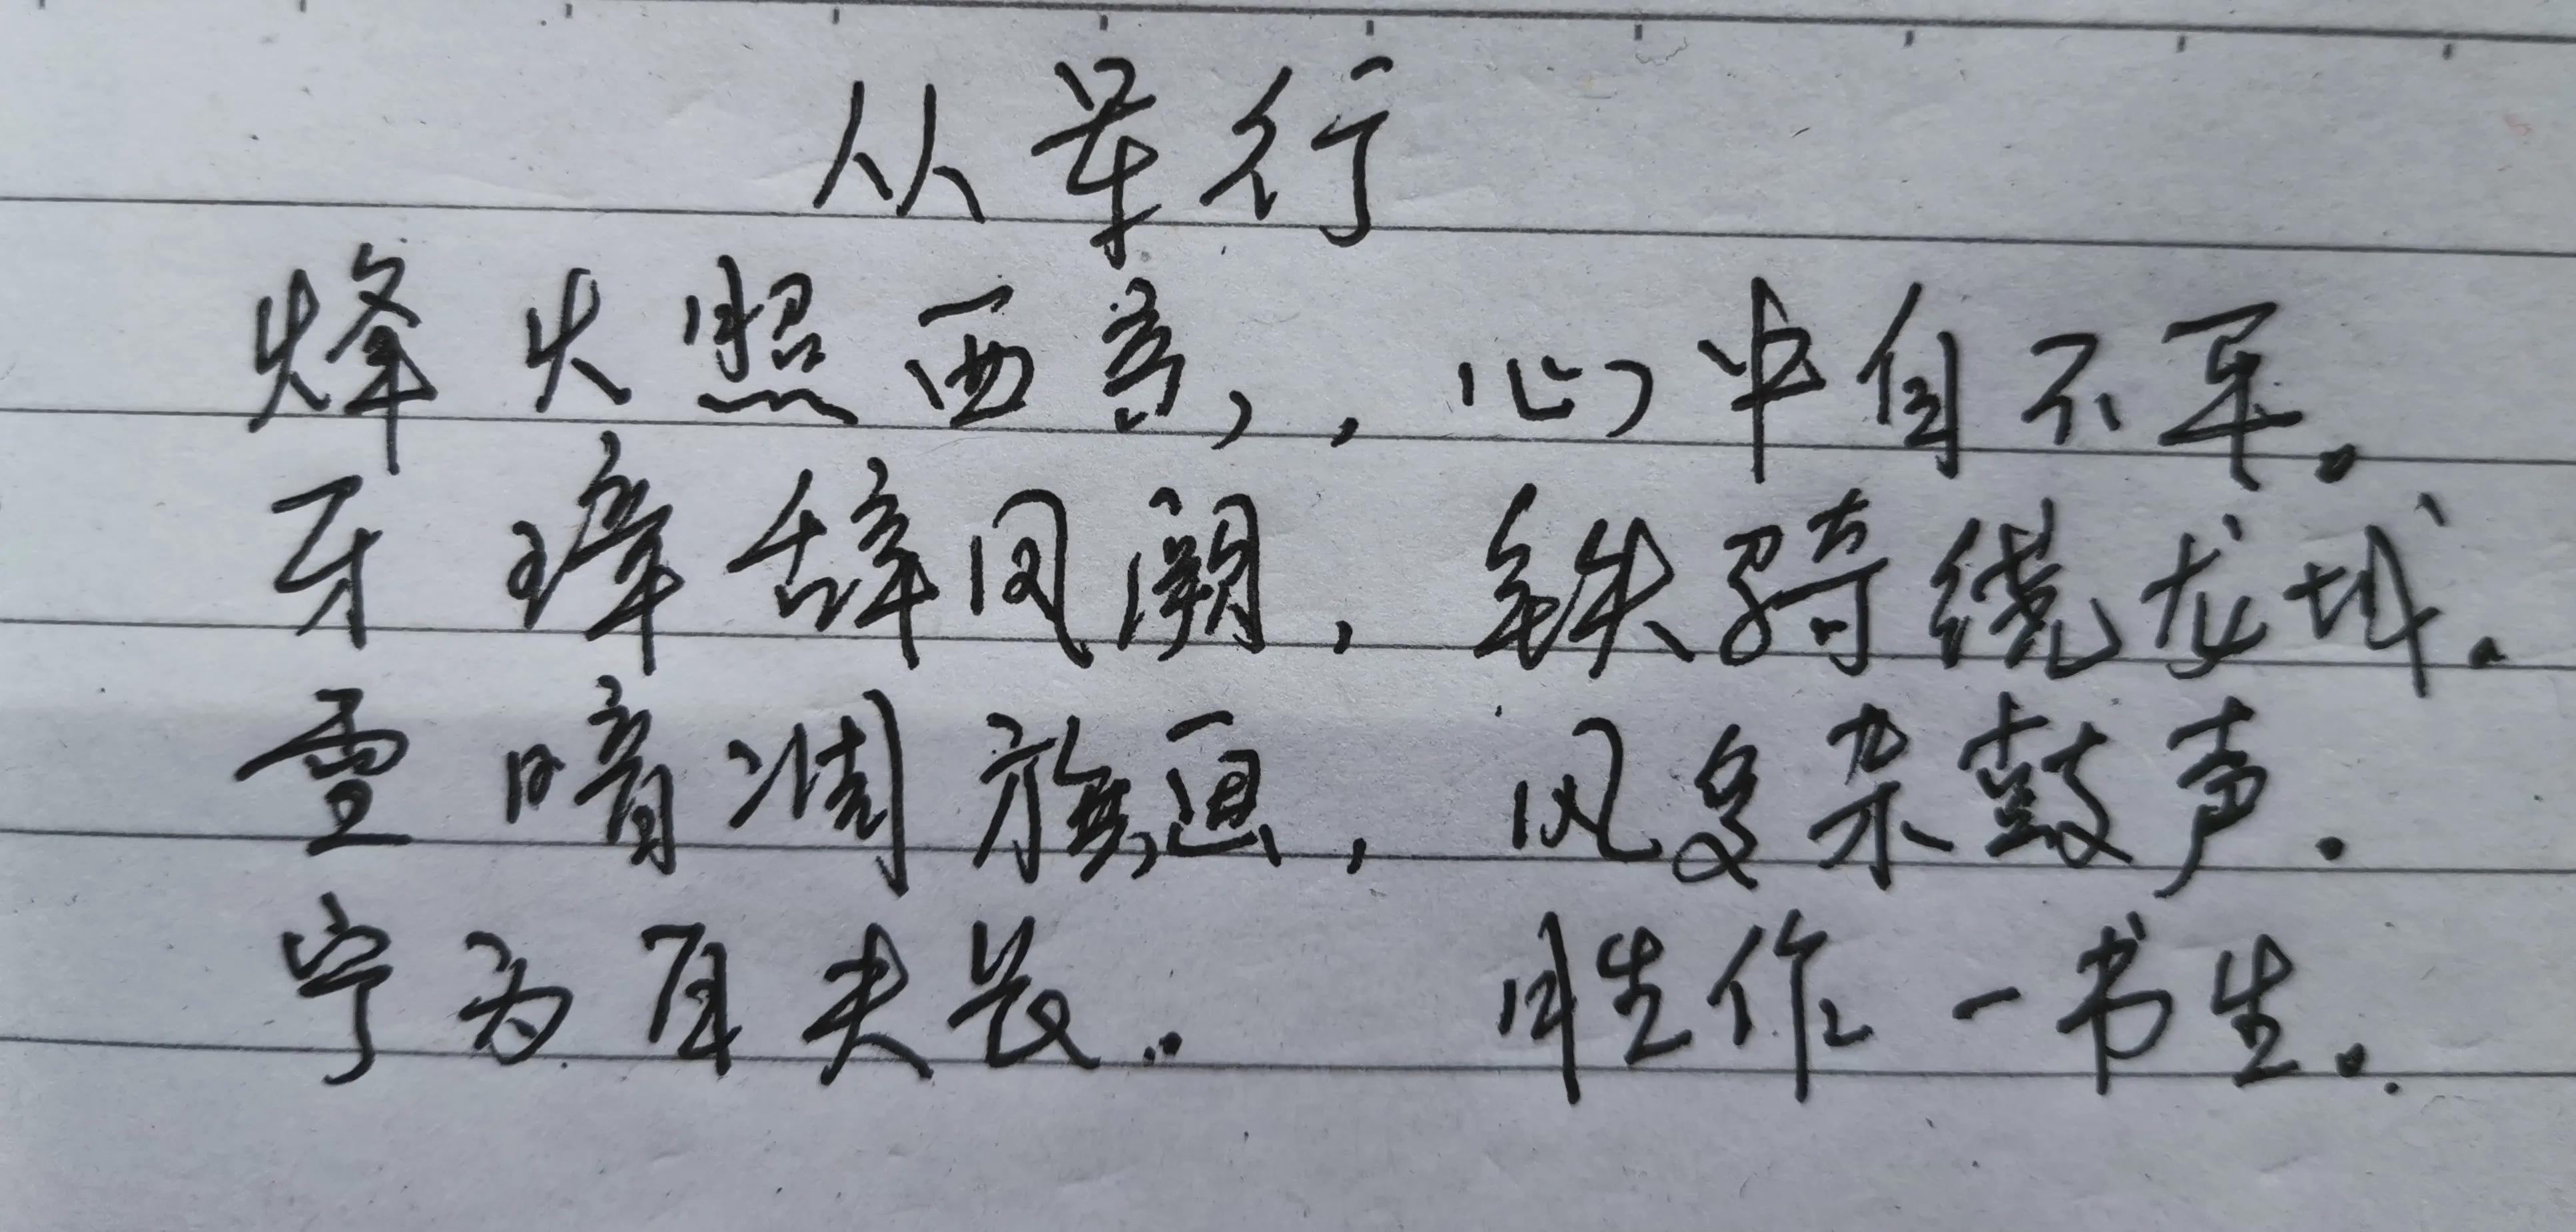 从军行
烽火照西京，心中自不平。
牙璋辞凤阙，铁骑绕龙城.
雪暗凋旗画，风多杂鼓声.
宁为百夫长。胜作一书生。